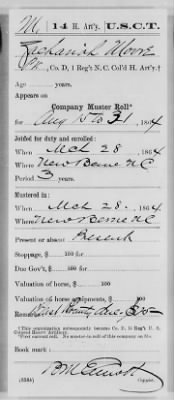 M | 14 H. Art'y. | U.S.C.T.
Zachariah Moore
Pvt., Co. D, 1 Reg't N. C. Col'd H. Art'y.†
Age years.
Appears on
Company Muster Roll*
for Aug 15 to 31, 1864
Joined for duty and enrolled:
When Mch 28, 1864
Where New Berne N.C
Period 3 years.
Mustered in:
When Mch 28, 1864
Where New Berne N.C
Present or absent Present
Stoppage, $ 100 for
Due Gov't, $ 100 for
Valuation of horse, $ 100
Valuation of horse equipments, $ 100
Remarks: Bounty due
*This organization subsequently became Co. D, 14 Reg't U. S. Colored Heavy Artillery.
Book mark:
(358h) Copyist.